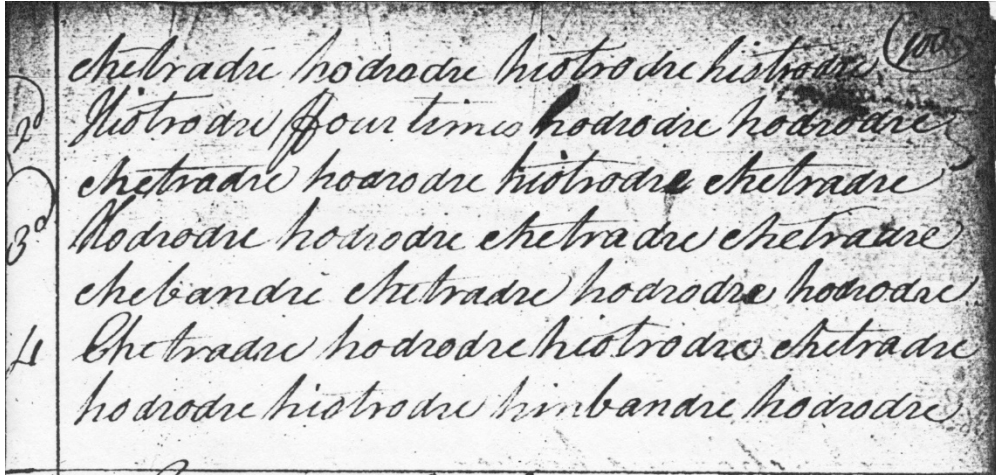 chetradre hodrodre hiotrodre histrodre
2d Hiotrodre ffour times hodrodre hodrodre
chetradre hodrodre hiotrodre chetradre
3d Hodrodre hodrodre chetradre chetradre
chebandre chetradre hodrodre hodrodre
4 Chetradre hodrodre hiotrodre chetradre
hodrodre hiotrodre hinbandre hodrodre